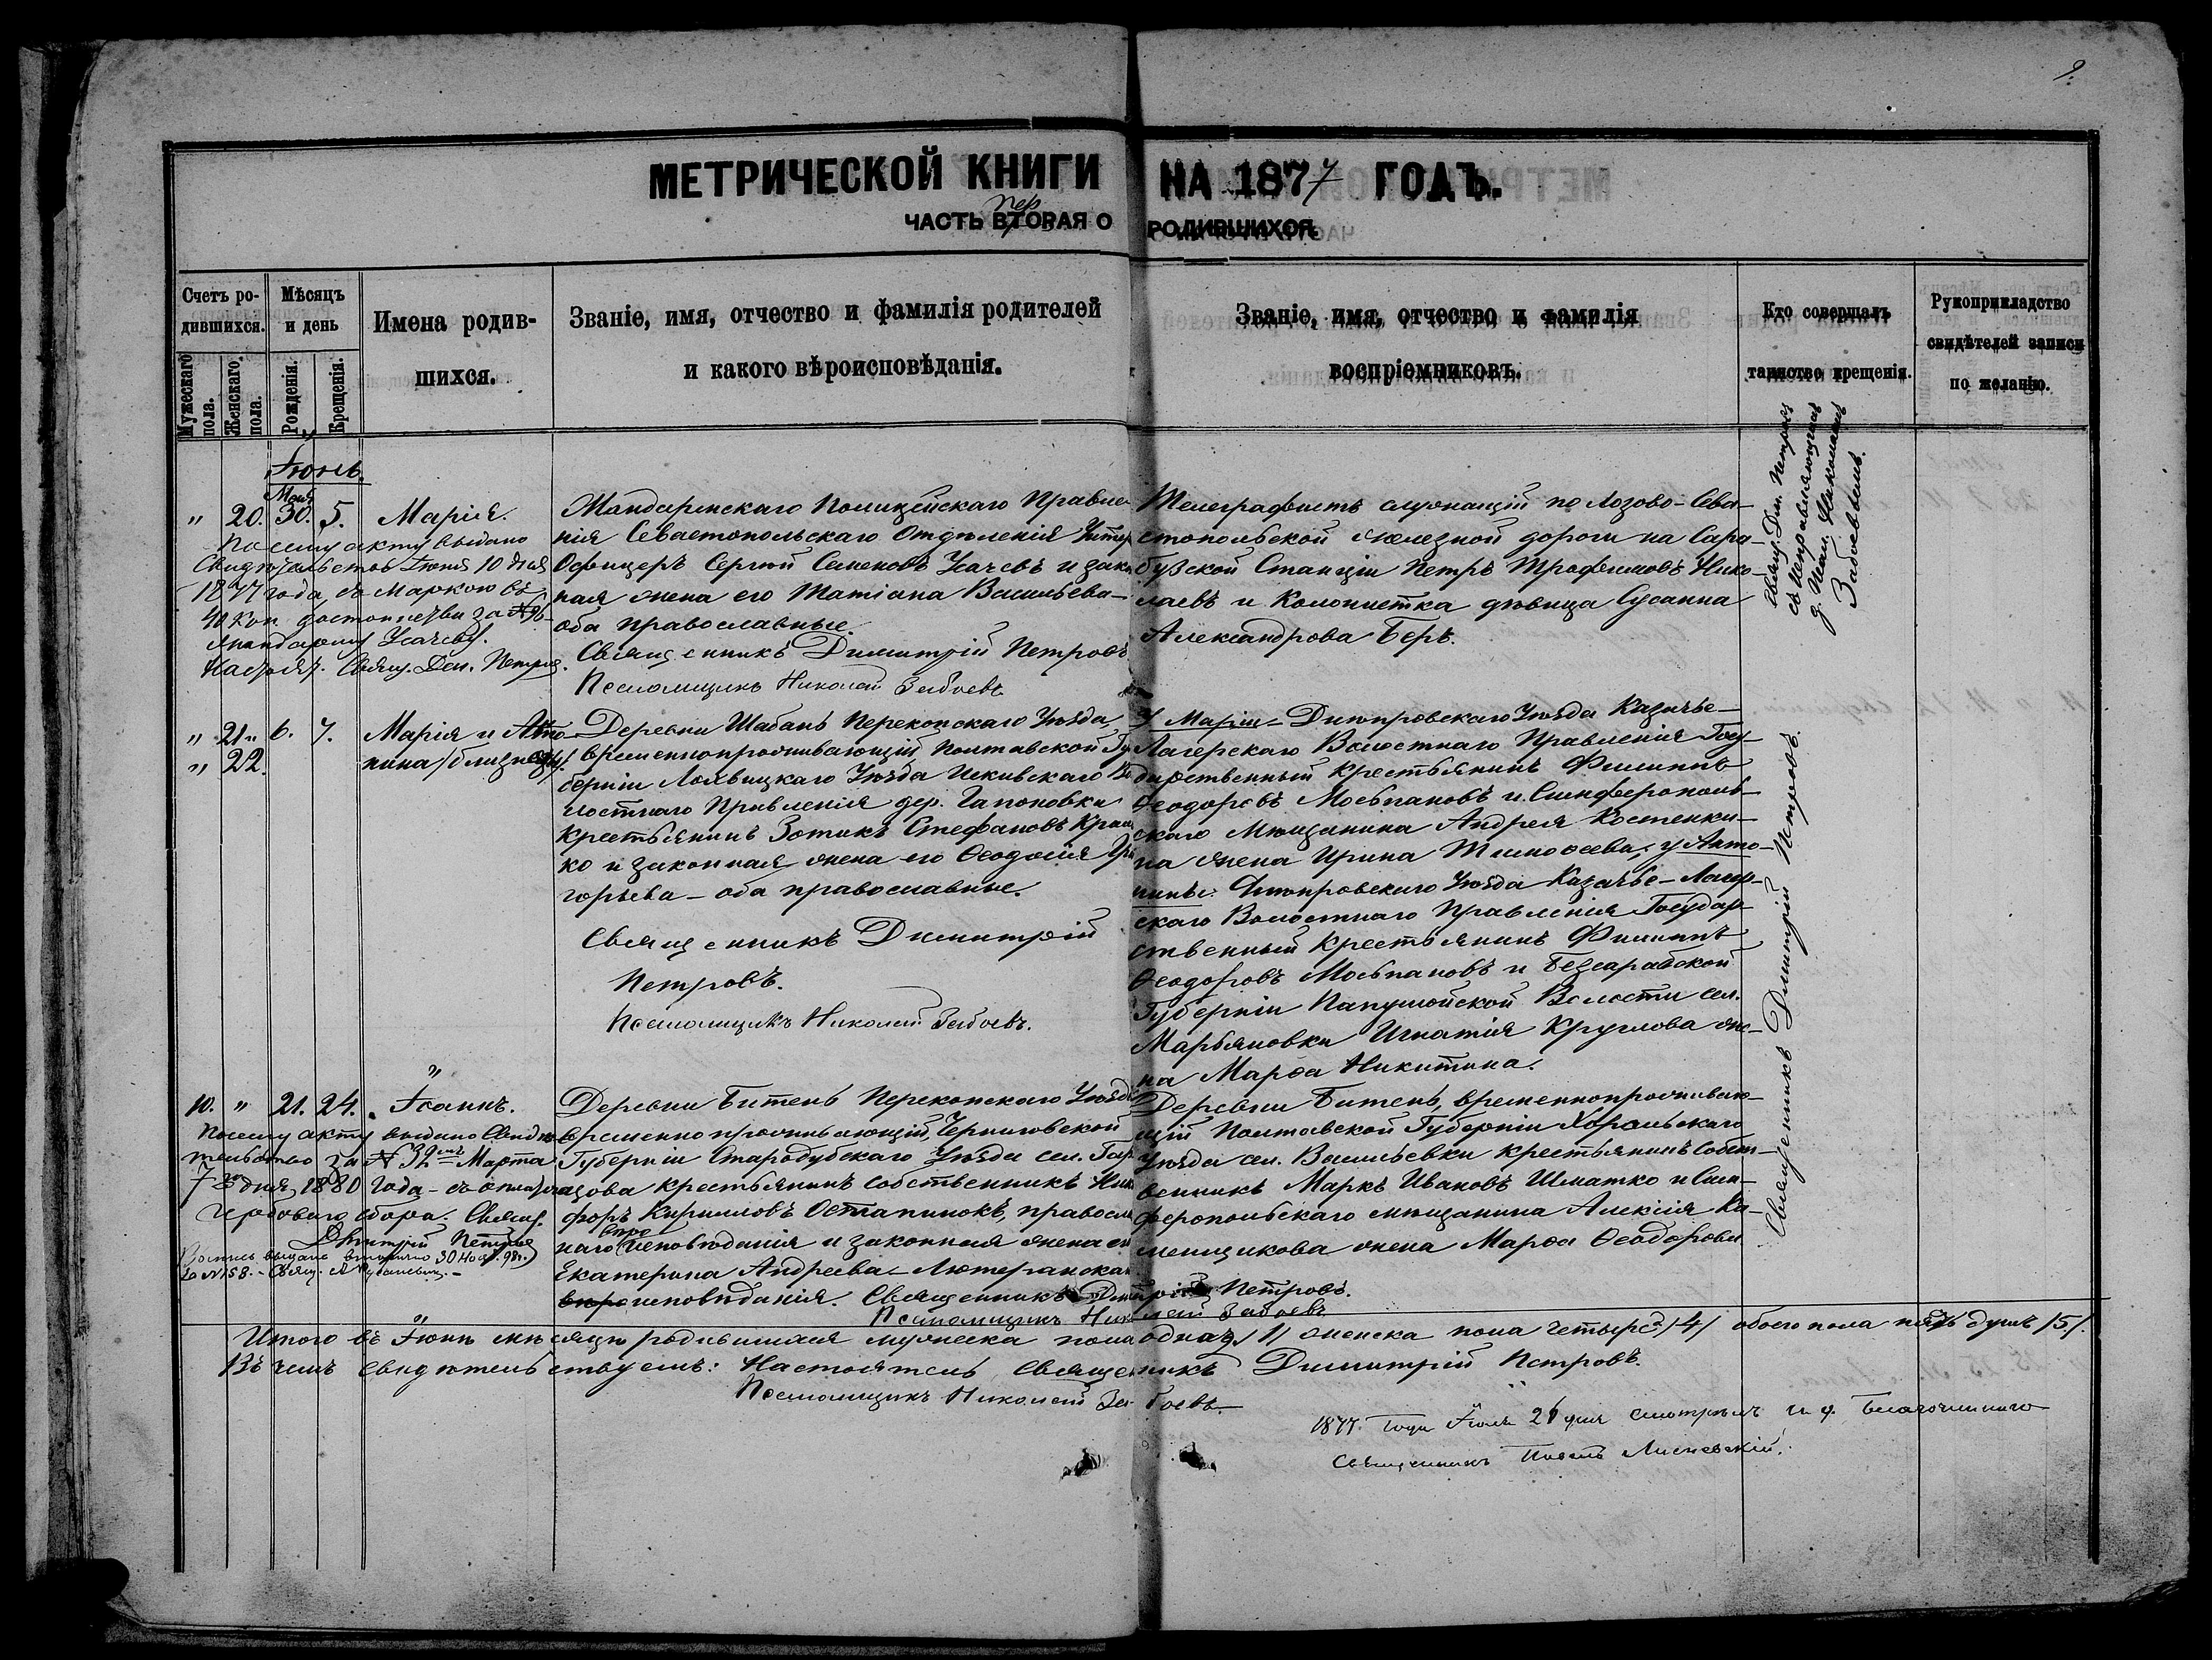 9.
МЕТРИЧЕСКОЙ КНИГИ НА 1877 ГОДЪ.
пер
ЧАСТЬ ВТОРАЯ О РОДИВШИХСЯ.
Счетъ ро-
дившихся.
Мужескаго пола.
Женскаго пола.
Мѣсяцъ
и день
Рожденія.
Крещенія.
Имена родив-
шихся.
Званіе, имя, отчество и фамилія родителей
и какого вѣроисповѣданія.
Званіе, имя, отчество и фамилія
воспріемниковъ.
Кто совершалъ
таинство крещенія.
Рукоприкладство
свидѣтелей записи
по желанію.
Іюнь.
Мая
" 20. 30. 5. Марія.
По сему акту выдано
Свидѣтельство Іюня 10 дня
1877 года, съ маркою въ
40 коп достоинства за №96
жандарму Усачеву.
Свящ. Дм. Петровъ.
Жандармскаго Полицейскаго Правле-
нія Севастопольскаго Отдѣленія Унтеръ
Офицеръ Сергій Семеновъ Усачевъ и закон
ная жена его Татіана Васильева—
оба православные.
Священникъ Димитрій Петровъ
Псаломщикъ Николай Забоевъ.
Телеграфистъ служащій по Лозово-Сева-
стопольской желѣзной дороги на Сара-
бузской Станціи Петръ Трофимовъ Нико-
лаевъ и Колонистка дѣвица Сусанна
Александрова Беръ.
Свящ. Дм. Петровъ
съ исправляющимъ
д. Псал. Николаемъ
Забоевымъ.
" 21. 6. 7. Марія и Анто-
" 22. нина /близнецы/.
Деревни Шабань Перекопскаго Уѣзда
временнопроживающій Полтавской Гу
берніи Лохвицкаго Уѣзда Исковскаго Во
лостнаго Правленія дер. Гапоновки
крестьянинъ Зотикъ Стефановъ
ко и законная жена его Ѳеодосія Гри
горьева — оба православные.
Священникъ Димитрій
Петровъ.
Псаломщикъ Николай Забоевъ.
У Маріи — Днѣпровскаго Уѣзда Казачье-
Лагерскаго Волостнаго Правленія Госу-
дарственный крестьянинъ Филиппъ
Ѳеодоровъ Мосьпановъ и Симферополь-
скаго Мѣщанина Андрея Костенки-
на жена Ирина Тимоѳеева; у Анто-
нины: Днѣпровскаго Уѣзда Казачье-Лагер-
скаго Волостнаго Правленія Государ-
ственный крестьянинъ Филиппъ
Ѳеодоровъ Мосьпановъ и Безсарабской
Губерніи Папушойской Волости сел.
Марьяновки Игнатія Круглова же-
на Марѳа Никитина.
Священникъ Димитрій Петровъ.
10. " 21. 24. Іоаннъ.
По сему акту выдано Свидѣ-
тельство за № 32 Марта
7 дня 1880 года — съ оплатою
гербоваго сбора. Свящ.
Дмитрій Петровъ
Выпись выдана вторично 30 Нояб. 98г.
за №158. — Свящ.
Деревни Битень Перекопскаго Уѣзда
временно проживающій, Черниговской
Губерніи Стародубскаго Уѣзда сел.
крестьянинъ собственникъ Ники
форъ Кирилловъ Осташинокъ, православ
наго вѣроисповѣданія и законная жена его
Екатерина Андреева — Лютеранскаго
вѣроисповѣданія. Священникъ Димитрій Петровъ.
Псаломщикъ Николай Забоевъ
Деревни Битень, временнопроживаю-
щій Полтавской Губерніи Хорольскаго
Уѣзда сел. Васильевки крестьянинъ собст-
венникъ Маркъ Ивановъ Шматко и Сим-
феропольскаго мѣщанина Алексія Ка-
менщикова жена Марѳа Ѳеодорова
Итого въ Іюнѣ мѣсяцѣ родившихся мужеска пола одна /1/ женска пола четыре /4/ обоего пола пять душъ /5/.
Въ чемъ свидѣтельствуемъ: Настоятель Священникъ Димитрій Петровъ.
Псаломщикъ Николай Забоевъ
1877 года Іюля 26 дня смотрѣлъ и. д. Благочиннаго
священникъ Лисневскій.